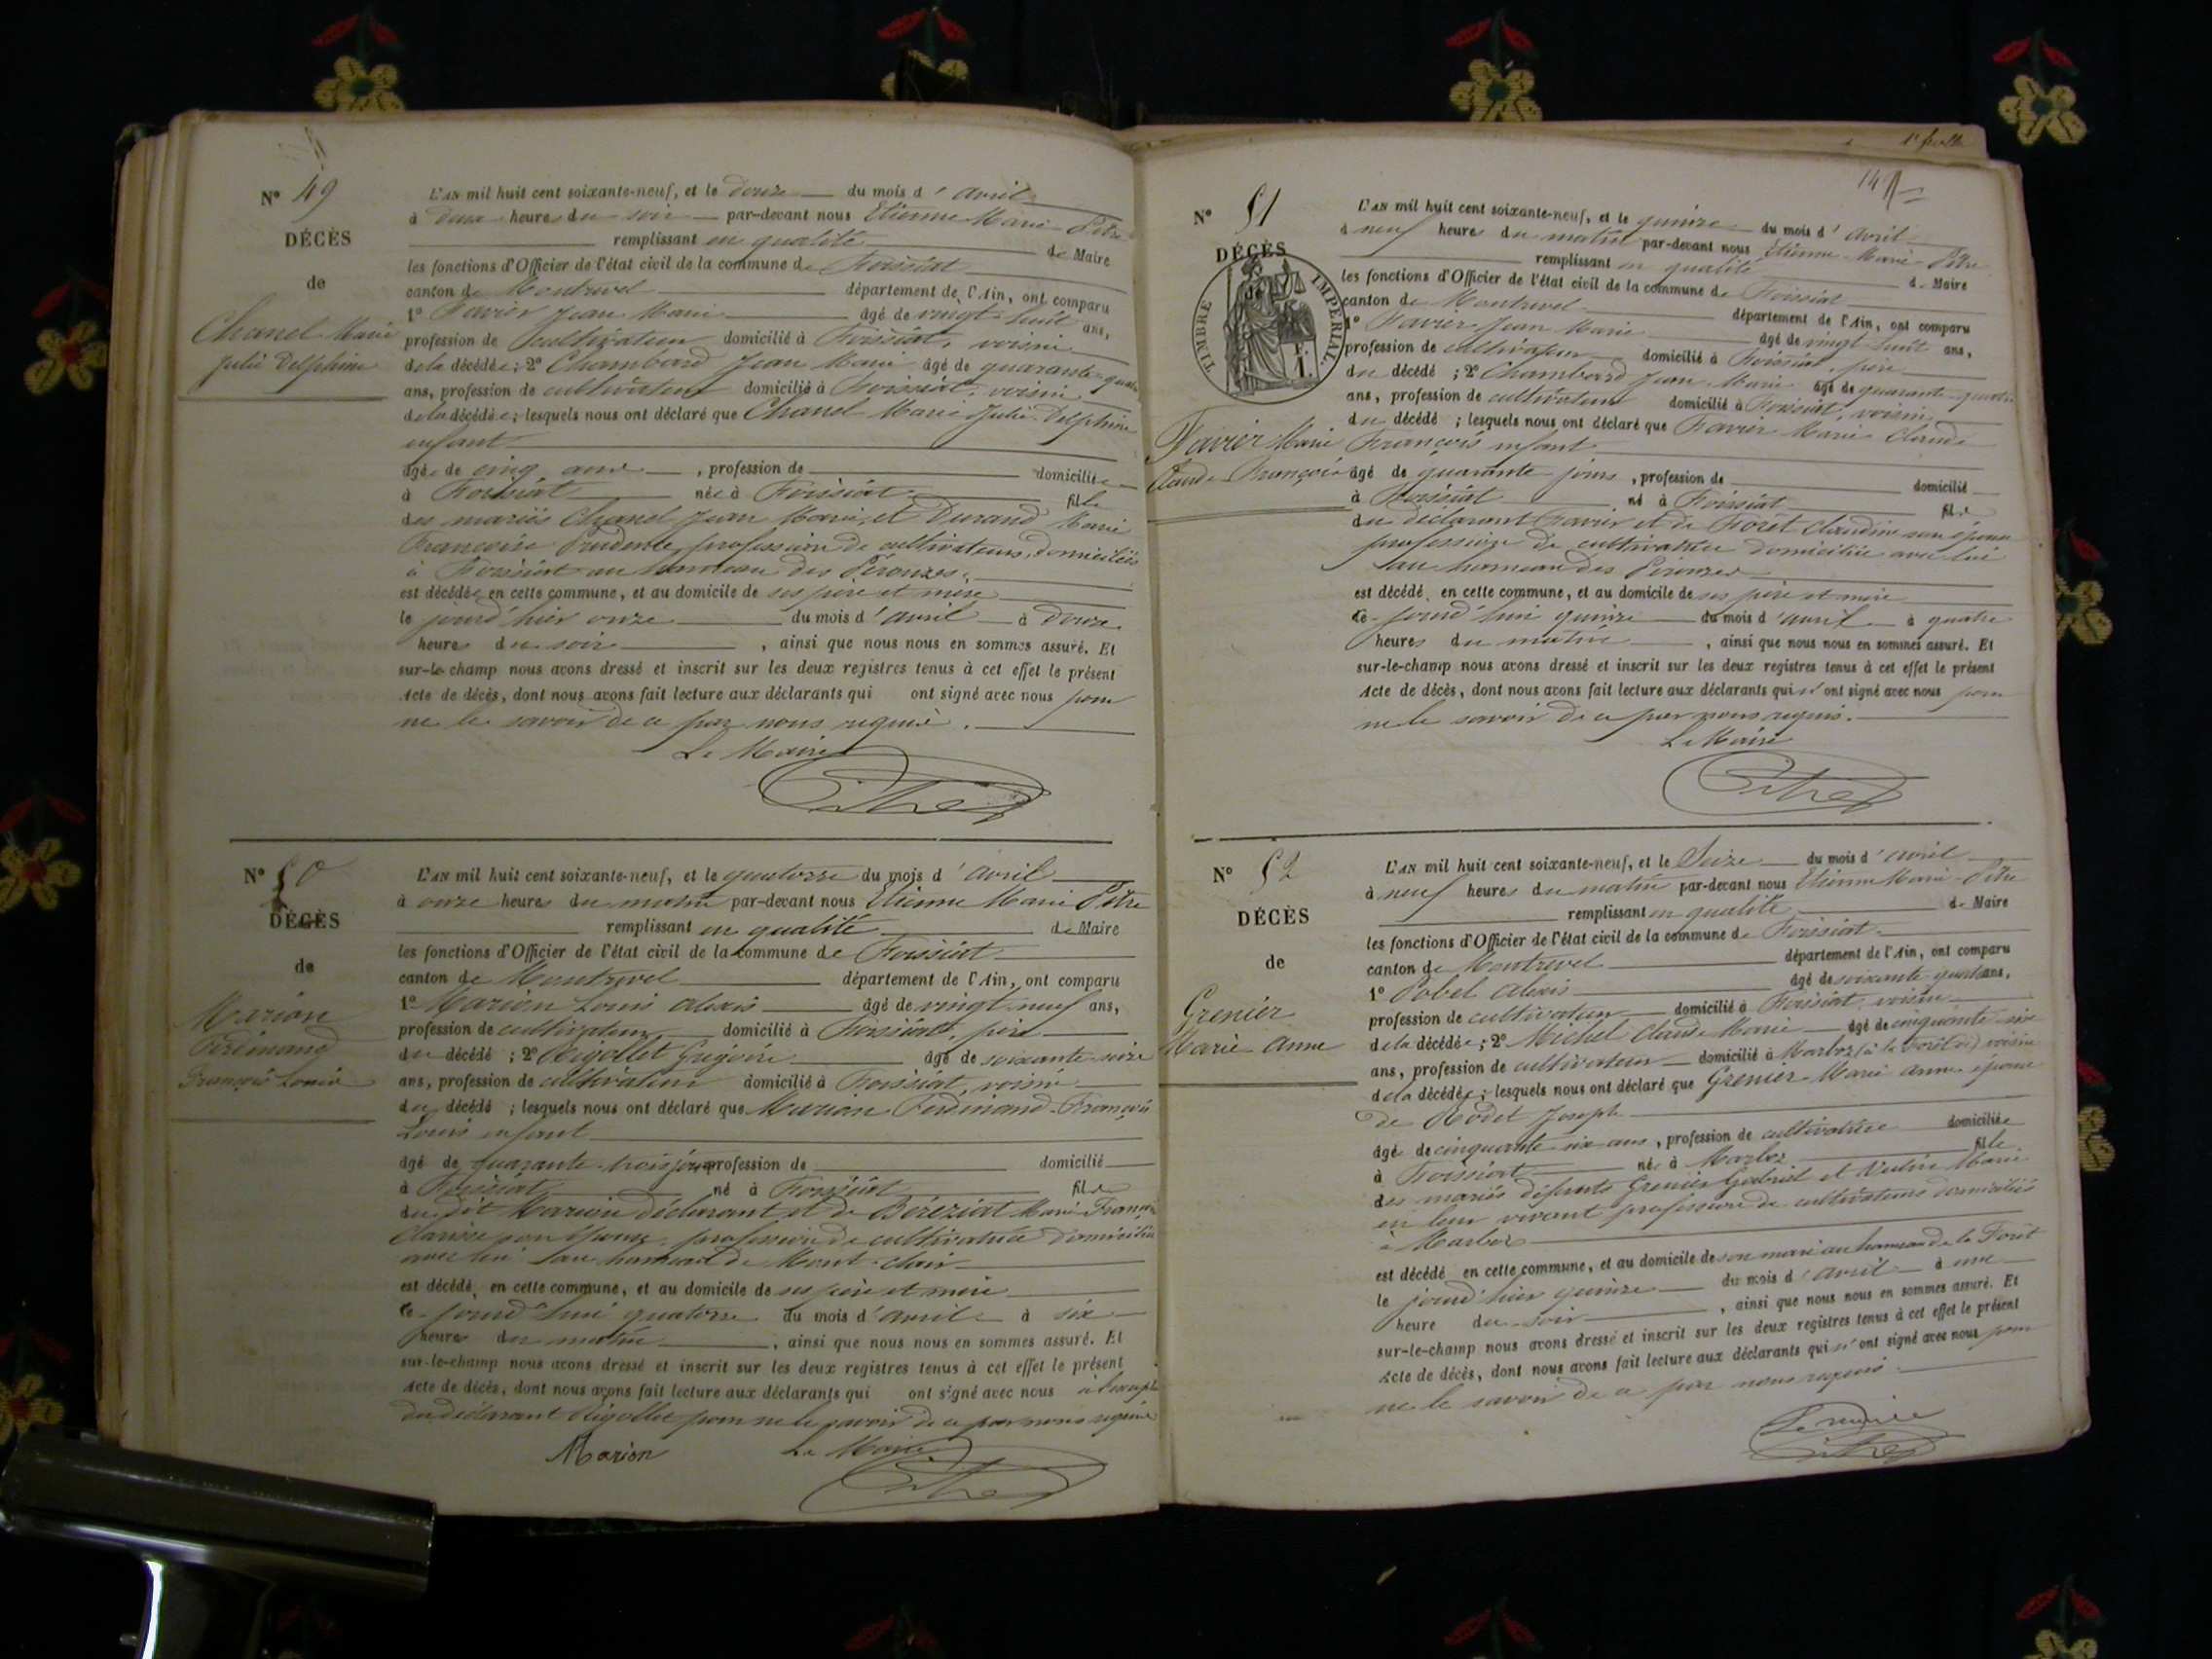 N° 49
DÉCÈS
de
Chanel Marie
Julie Delphine
L'AN mil huit cent soixante-neuf, et le douze du mois d'avril
à deux heures du soir par-devant nous Etienne Marie Pitre
remplissant en qualité de Maire
les fonctions d'Officier de l'état civil de la commune de Foissiat
canton de Montrevel département de l'Ain, ont comparu
1° Favier Jean Marie âgé de vingt huit ans,
profession de cultivateur domicilié à Foissiat, voisin
de la décédée; 2° Chambard Jean Marie âgé de quarante-quatre
ans, profession de cultivateur domicilié à Foissiat, voisin
de la décédée; lesquels nous ont déclaré que Chanel Marie Julie Delphine
enfant
âgée de cinq ans, profession de domiciliée
à Foissiat née à Foissiat fille
des mariés Chanel Jean Marie, et Durand Marie
Françoise Prudente, profession de cultivateurs, domiciliés
à Foissiat au hameau des Péronzes,
est décédée en cette commune, et au domicile de ses père et mère
le jourd'hier onze du mois d'avril à douze
heures du soir, ainsi que nous nous en sommes assuré. Et
sur-le-champ nous avons dressé et inscrit sur les deux registres tenus à cet effet le présent
Acte de décès, dont nous avons fait lecture aux déclarants qui ont signé avec nous pour
ne le savoir de ce par nous requis.
Le Maire
Pitre
N° 50
DÉCÈS
de
Marion
Ferdinand
François Louis
L'AN mil huit cent soixante-neuf, et le quatorze du mois d'avril
à onze heures du matin par-devant nous Etienne Marie Pitre
remplissant en qualité de Maire
les fonctions d'Officier de l'état civil de la commune de Foissiat
canton de Montrevel département de l'Ain, ont comparu
1° Marion Louis Alexis âgé de vingt neuf ans,
profession de cultivateur domicilié à Foissiat, père
du décédé; 2° Rigollet Grégoire âgé de soixante seize
ans, profession de cultivateur domicilié à Foissiat, voisin
du décédé; lesquels nous ont déclaré que Marion Ferdinand François
Louis enfant
âgé de quarante-trois jours profession de domicilié
à Foissiat né à Foissiat fils
du dit Marion déclarant et de Béréziat Marie Françoise
Clarisse son épouse, profession de cultivatrice domiciliée
avec lui au hameau de Mont-clair
est décédé en cette commune, et au domicile de ses père et mère
ce jourd'hui quatorze du mois d'avril à six
heures du matin, ainsi que nous nous en sommes assuré. Et
sur-le-champ nous avons dressé et inscrit sur les deux registres tenus à cet effet le présent
Acte de décès, dont nous avons fait lecture aux déclarants qui ont signé avec nous à l'except
du déclarant Rigollet pour ne le savoir de ce par nous requis
Marion Le Maire
Pitre
N° 51
DÉCÈS
de
TIMBRE IMPÉRIAL
Favier Marie
Claude François
L'AN mil huit cent soixante-neuf, et le quinze du mois d'avril
à neuf heures du matin par-devant nous Etienne Marie Pitre
remplissant en qualité de Maire
les fonctions d'Officier de l'état civil de la commune de Foissiat
canton de Montrevel département de l'Ain, ont comparu
1° Favier Jean Marie âgé de vingt huit ans,
profession de cultivateur domicilié à Foissiat, père
du décédé; 2° Chambard Jean Marie âgé de quarante-quatre
ans, profession de cultivateur domicilié à Foissiat, voisin
du décédé; lesquels nous ont déclaré que Favier Marie Claude
François enfant
âgé de quarante jours, profession de domicilié
à Foissiat né à Foissiat fils
du déclarant Favier et de Forêt Claudine son épouse
profession de cultivatrice domiciliée avec lui
au hameau des Péronzes
est décédé en cette commune, et au domicile de ses père et mère
ce jourd'hui quinze du mois d'avril à quatre
heures du matin, ainsi que nous nous en sommes assuré. Et
sur-le-champ nous avons dressé et inscrit sur les deux registres tenus à cet effet le présent
Acte de décès, dont nous avons fait lecture aux déclarants qui n'ont signé avec nous pour
ne le savoir de ce par nous requis.
Le Maire
Pitre
N° 52
DÉCÈS
de
Grenier
Marie Anne
L'AN mil huit cent soixante-neuf, et le Seize du mois d'avril
à neuf heures du matin par-devant nous Etienne Marie Pitre
remplissant en qualité de Maire
les fonctions d'Officier de l'état civil de la commune de Foissiat
canton de Montrevel département de l'Ain, ont comparu
1° Pobel Alexis âgé de soixante quatre ans,
profession de cultivateur domicilié à Foissiat, voisin
de la décédée; 2° Michel Claude Marie âgé de cinquante six
ans, profession de cultivateur domicilié à Marboz (à la Forêt) voisin
de la décédée; lesquels nous ont déclaré que Grenier Marie Anne épouse
de Rodet Joseph
âgée de cinquante six ans, profession de cultivatrice domiciliée
à Foissiat née à Marboz fille
des mariés défunts Grenier Gabriel et Marie
en leur vivant profession de cultivateurs domiciliés
à Marboz
est décédé en cette commune, et au domicile de son mari au hameau de la Forêt
le jourd'hier quinze du mois d'avril à une
heure du soir, ainsi que nous nous en sommes assuré. Et
sur-le-champ nous avons dressé et inscrit sur les deux registres tenus à cet effet le présent
Acte de décès, dont nous avons fait lecture aux déclarants qui n'ont signé avec nous pour
ne le savoir de ce par nous requis.
Le maire
Pitre